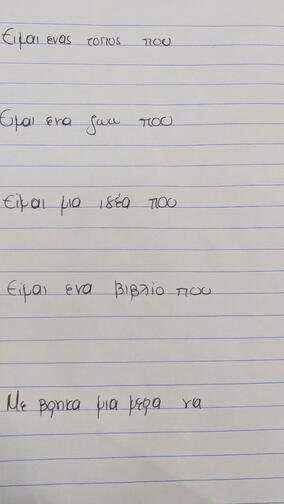 Ειμαι ενας τοπος που
Ειμαι ενα ζωω που
Είμαι μια ιδέα που
Είμαι ενα βιβλίο που
Με βρηκα μια μερα να